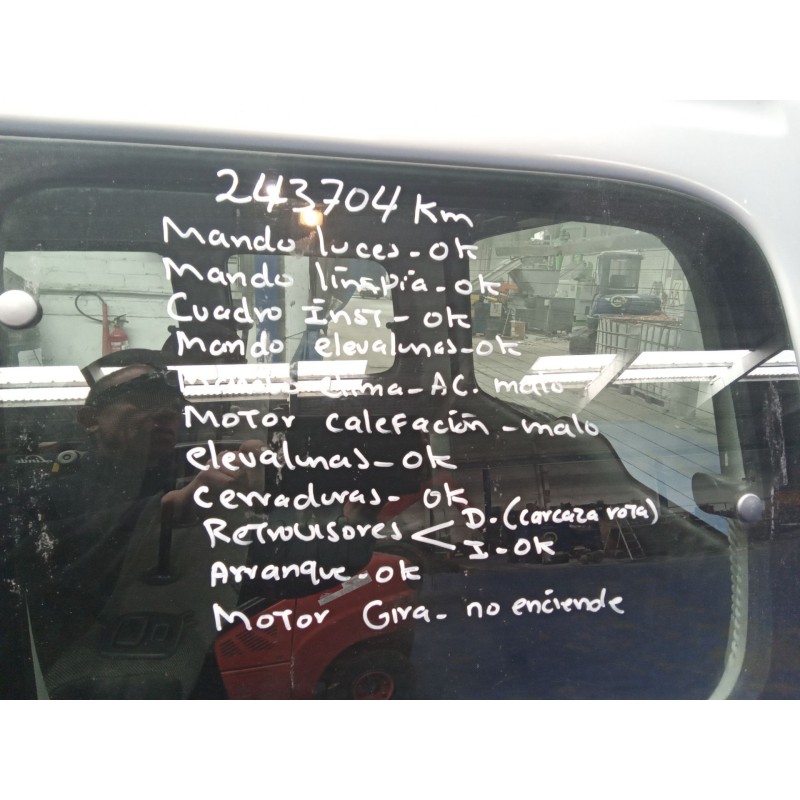 243704 Km
Mando luces - OK
Mando limpia - OK
Cuadro Inst - OK
Mando elevalunas - OK
Mando Clima - A.C. malo
Motor calefación - malo
elevalunas - OK
cerraduras - OK
Retrovisores < D. (carcaza rota)
I - OK
Arranque - OK
Motor Gira - no enciende